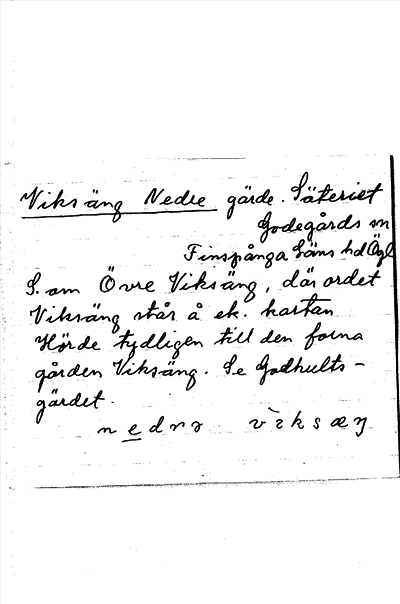 Viksäng Nedre gärde. Säteriet
Godegårds sn
Finspånga läns hd Ögl
S. om Övre Viksäng, där ordet
Viksäng står å ek. kartan
Hörde tydligen till den forna
gården Viksäng. Se Godhults-
gärdet.
nedrə vìksæŋ